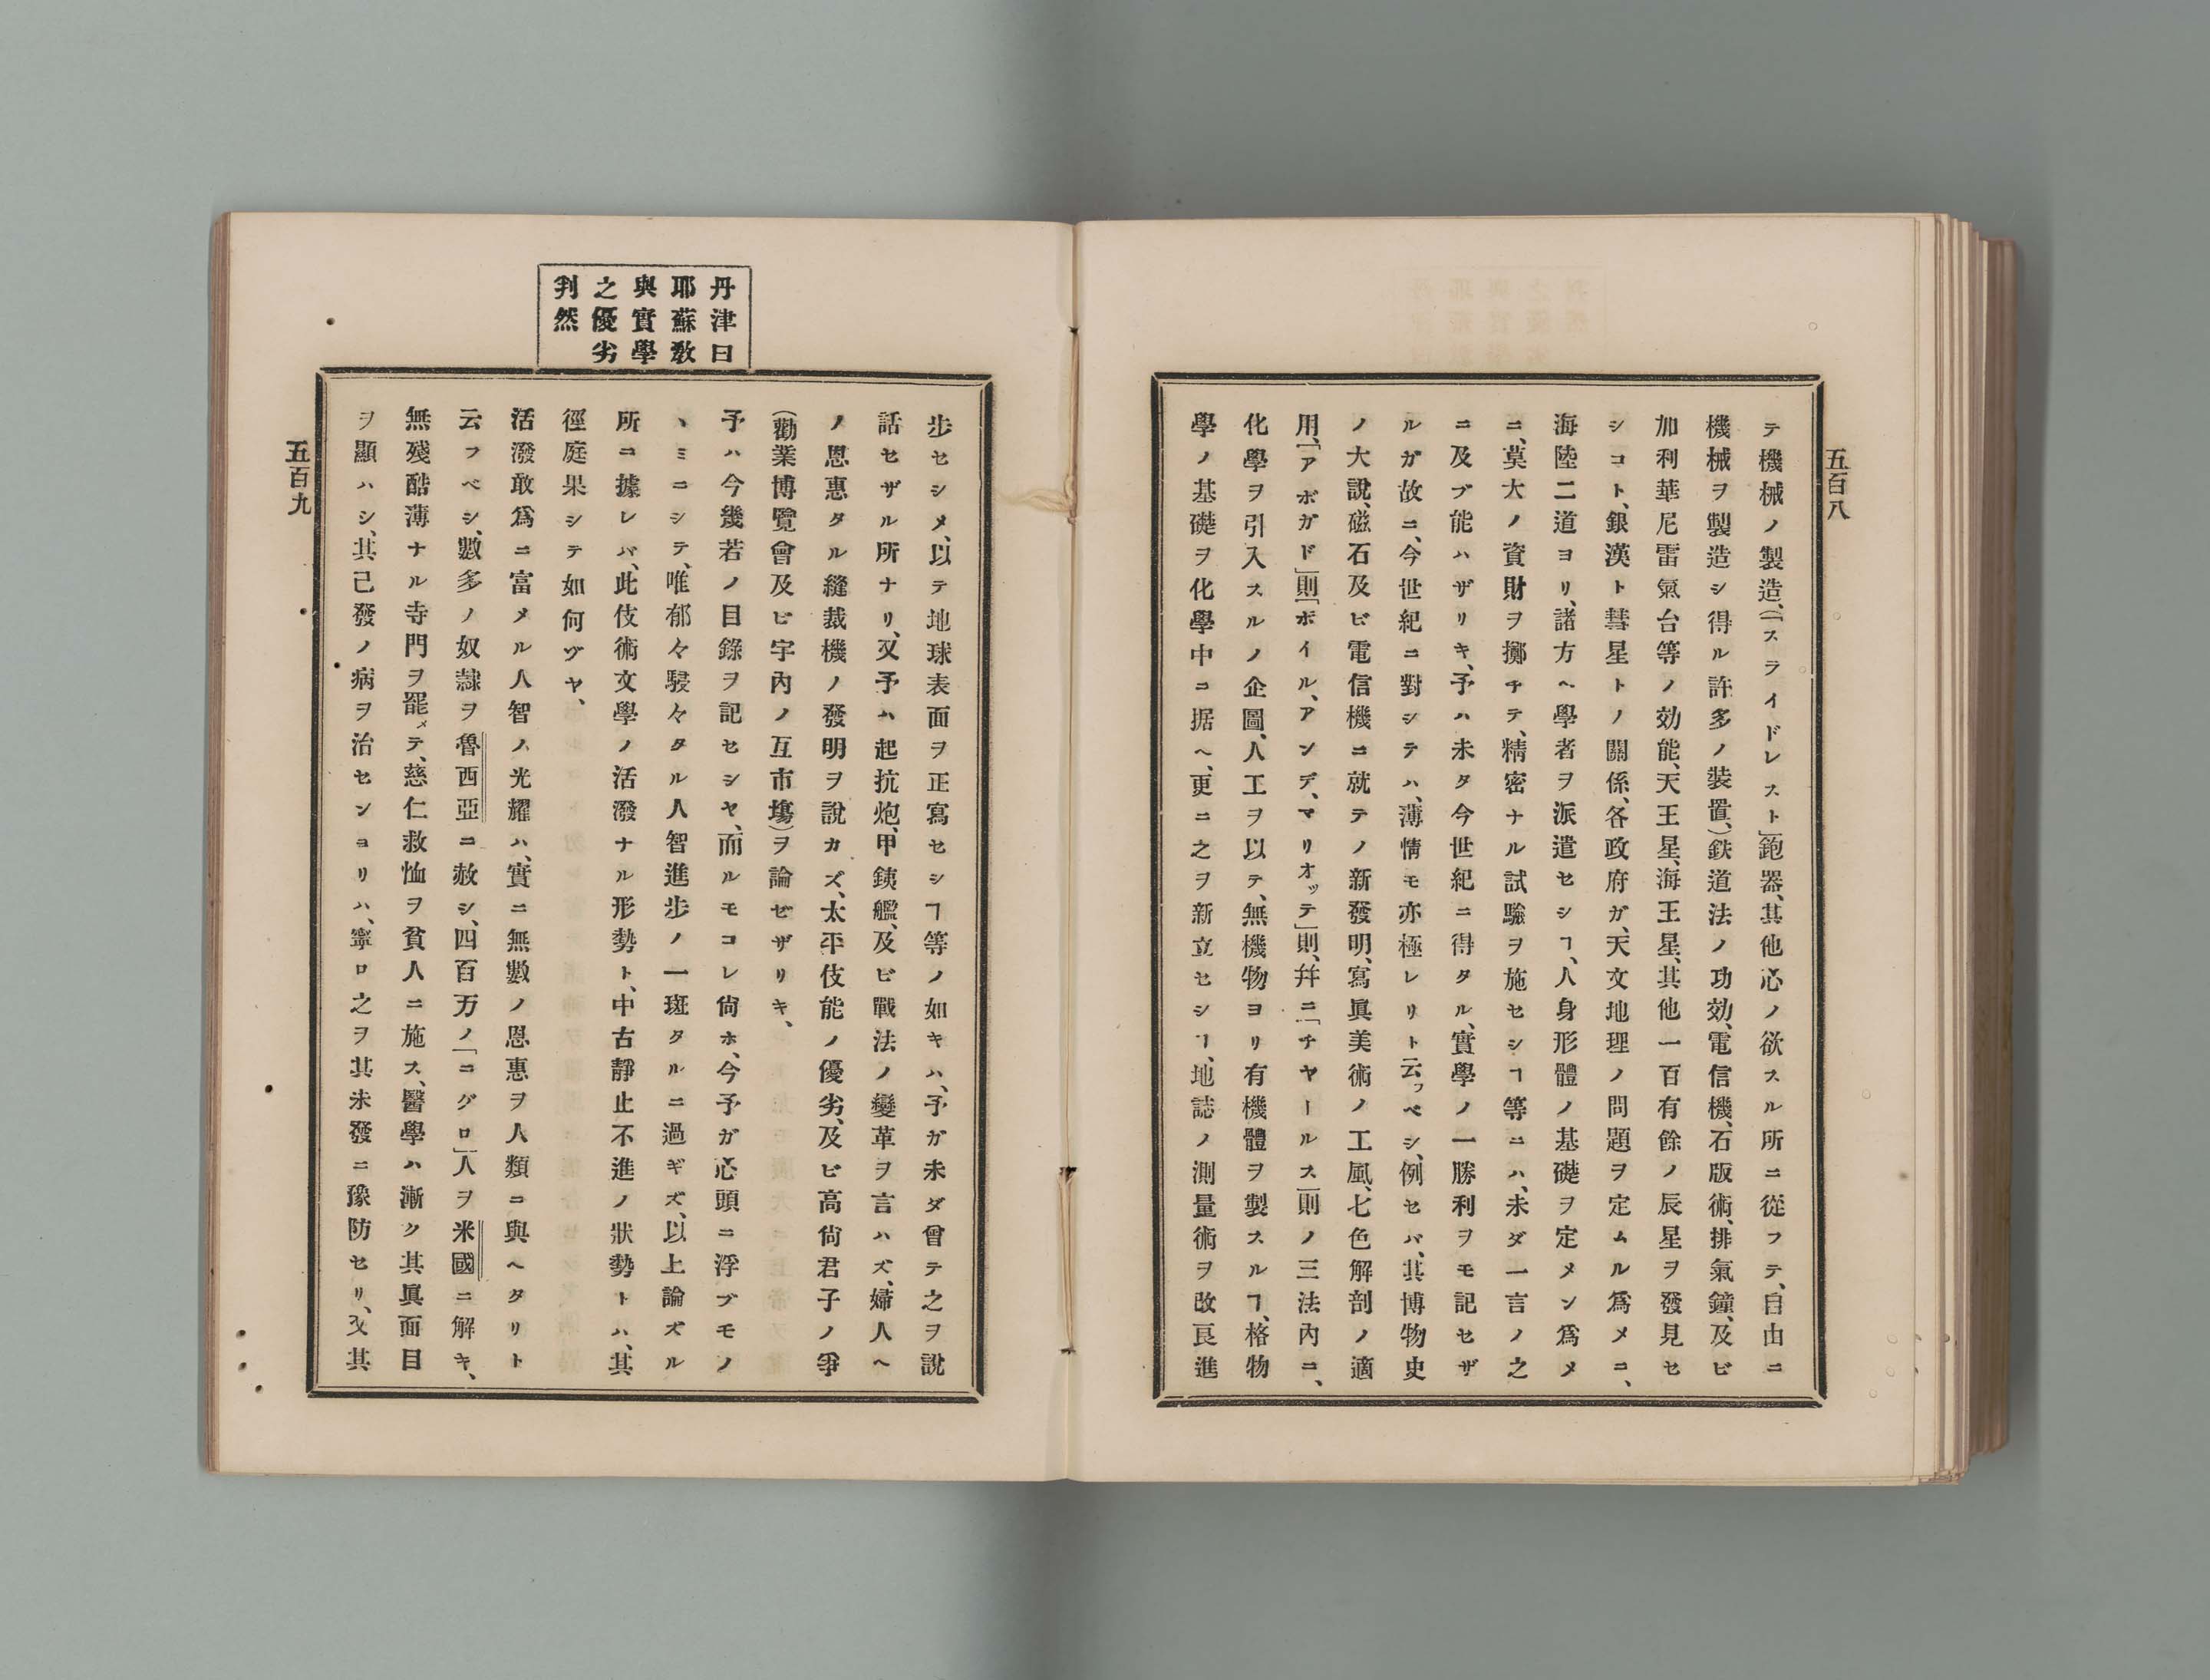 五百八
テ機械ノ製造、(「スライドレスト」鉋器、其他心ノ欲スル所ニ從フテ、自由ニ
機械ヲ製造シ得ル許多ノ裝置、)鉄道法ノ功効、電信機、石版術、排氣鐘、及ビ
加利華尼雷氣台等ノ効能、天王星、海王星、其他一百有餘ノ辰星ヲ發見セ
シコト、銀漢ト彗星トノ關係、各政府ガ、天文地理ノ問題ヲ定ムル爲メニ、
海陸二道ヨリ、諸方ヘ學者ヲ派遣セシヿ、人身形體ノ基礎ヲ定メン爲メ
ニ、莫大ノ資財ヲ擲チテ、精密ナル試驗ヲ施セシヿ等ニハ、未ダ一言ノ之
ニ及ブ能ハザリキ、予ハ未タ今世紀ニ得タル、實學ノ一勝利ヲモ記セザ
ルガ故ニ、今世紀ニ對シテハ、薄情モ亦極レリト云フベシ、例セバ、其博物史
ノ大說、磁石及ビ電信機ニ就テノ新發明、寫眞美術ノ工風、七色解剖ノ適
用、「アボガド」則「ボイル、アンデ、マリオッテ」則、并ニ「チヤールス」則ノ三法內ニ、
化學ヲ引入スルノ企圖、人工ヲ以テ、無機物ヨリ有機體ヲ製スルヿ、格物
學ノ基礎ヲ化學中ニ据ヘ、更ニ之ヲ新立セシヿ、地誌ノ測量術ヲ改良進
丹津曰
耶蘇敎
與實學
之優劣
判然
歩セシメ、以テ地球表面ヲ正寫セシヿ等ノ如キハ、予ガ未ダ曾テ之ヲ說
話セザル所ナリ、又予ハ起抗炮、甲銕艦、及ビ戰法ノ變革ヲ言ハズ、婦人ヘ
ノ恩惠タル縫裁機ノ發明ヲ說カズ、太平伎能ノ優劣、及ビ高尙君子ノ爭
(勸業博覽會及ビ宇內ノ互市塲)ヲ論ゼザリキ、
予ハ今幾若ノ目錄ヲ記セシヤ、而ルモコレ尙ホ、今予ガ心頭ニ浮ブモノ
ヽミニシテ、唯郁々駸々タル人智進歩ノ一斑タルニ過ギズ、以上論ズル
所ニ據レバ、此伎術文學ノ活潑ナル形勢ト、中古靜止不進ノ狀勢トハ、其
徑庭果シテ如何ヅヤ、
活潑敢爲ニ富メル人智ノ光耀ハ、實ニ無數ノ恩惠ヲ人類ニ與ヘタリト
云フベシ、數多ノ奴隷ヲ魯西亞ニ赦シ、四百万ノ「ニグロ」人ヲ米國ニ解キ、
無殘酷薄ナル寺門ヲ罷メテ、慈仁救恤ヲ貧人ニ施ス、醫學ハ漸ク其眞面目
ヲ顯ハシ、其已發ノ病ヲ治センヨリハ、寧ロ之ヲ其未發ニ豫防セリ、又其
五百九